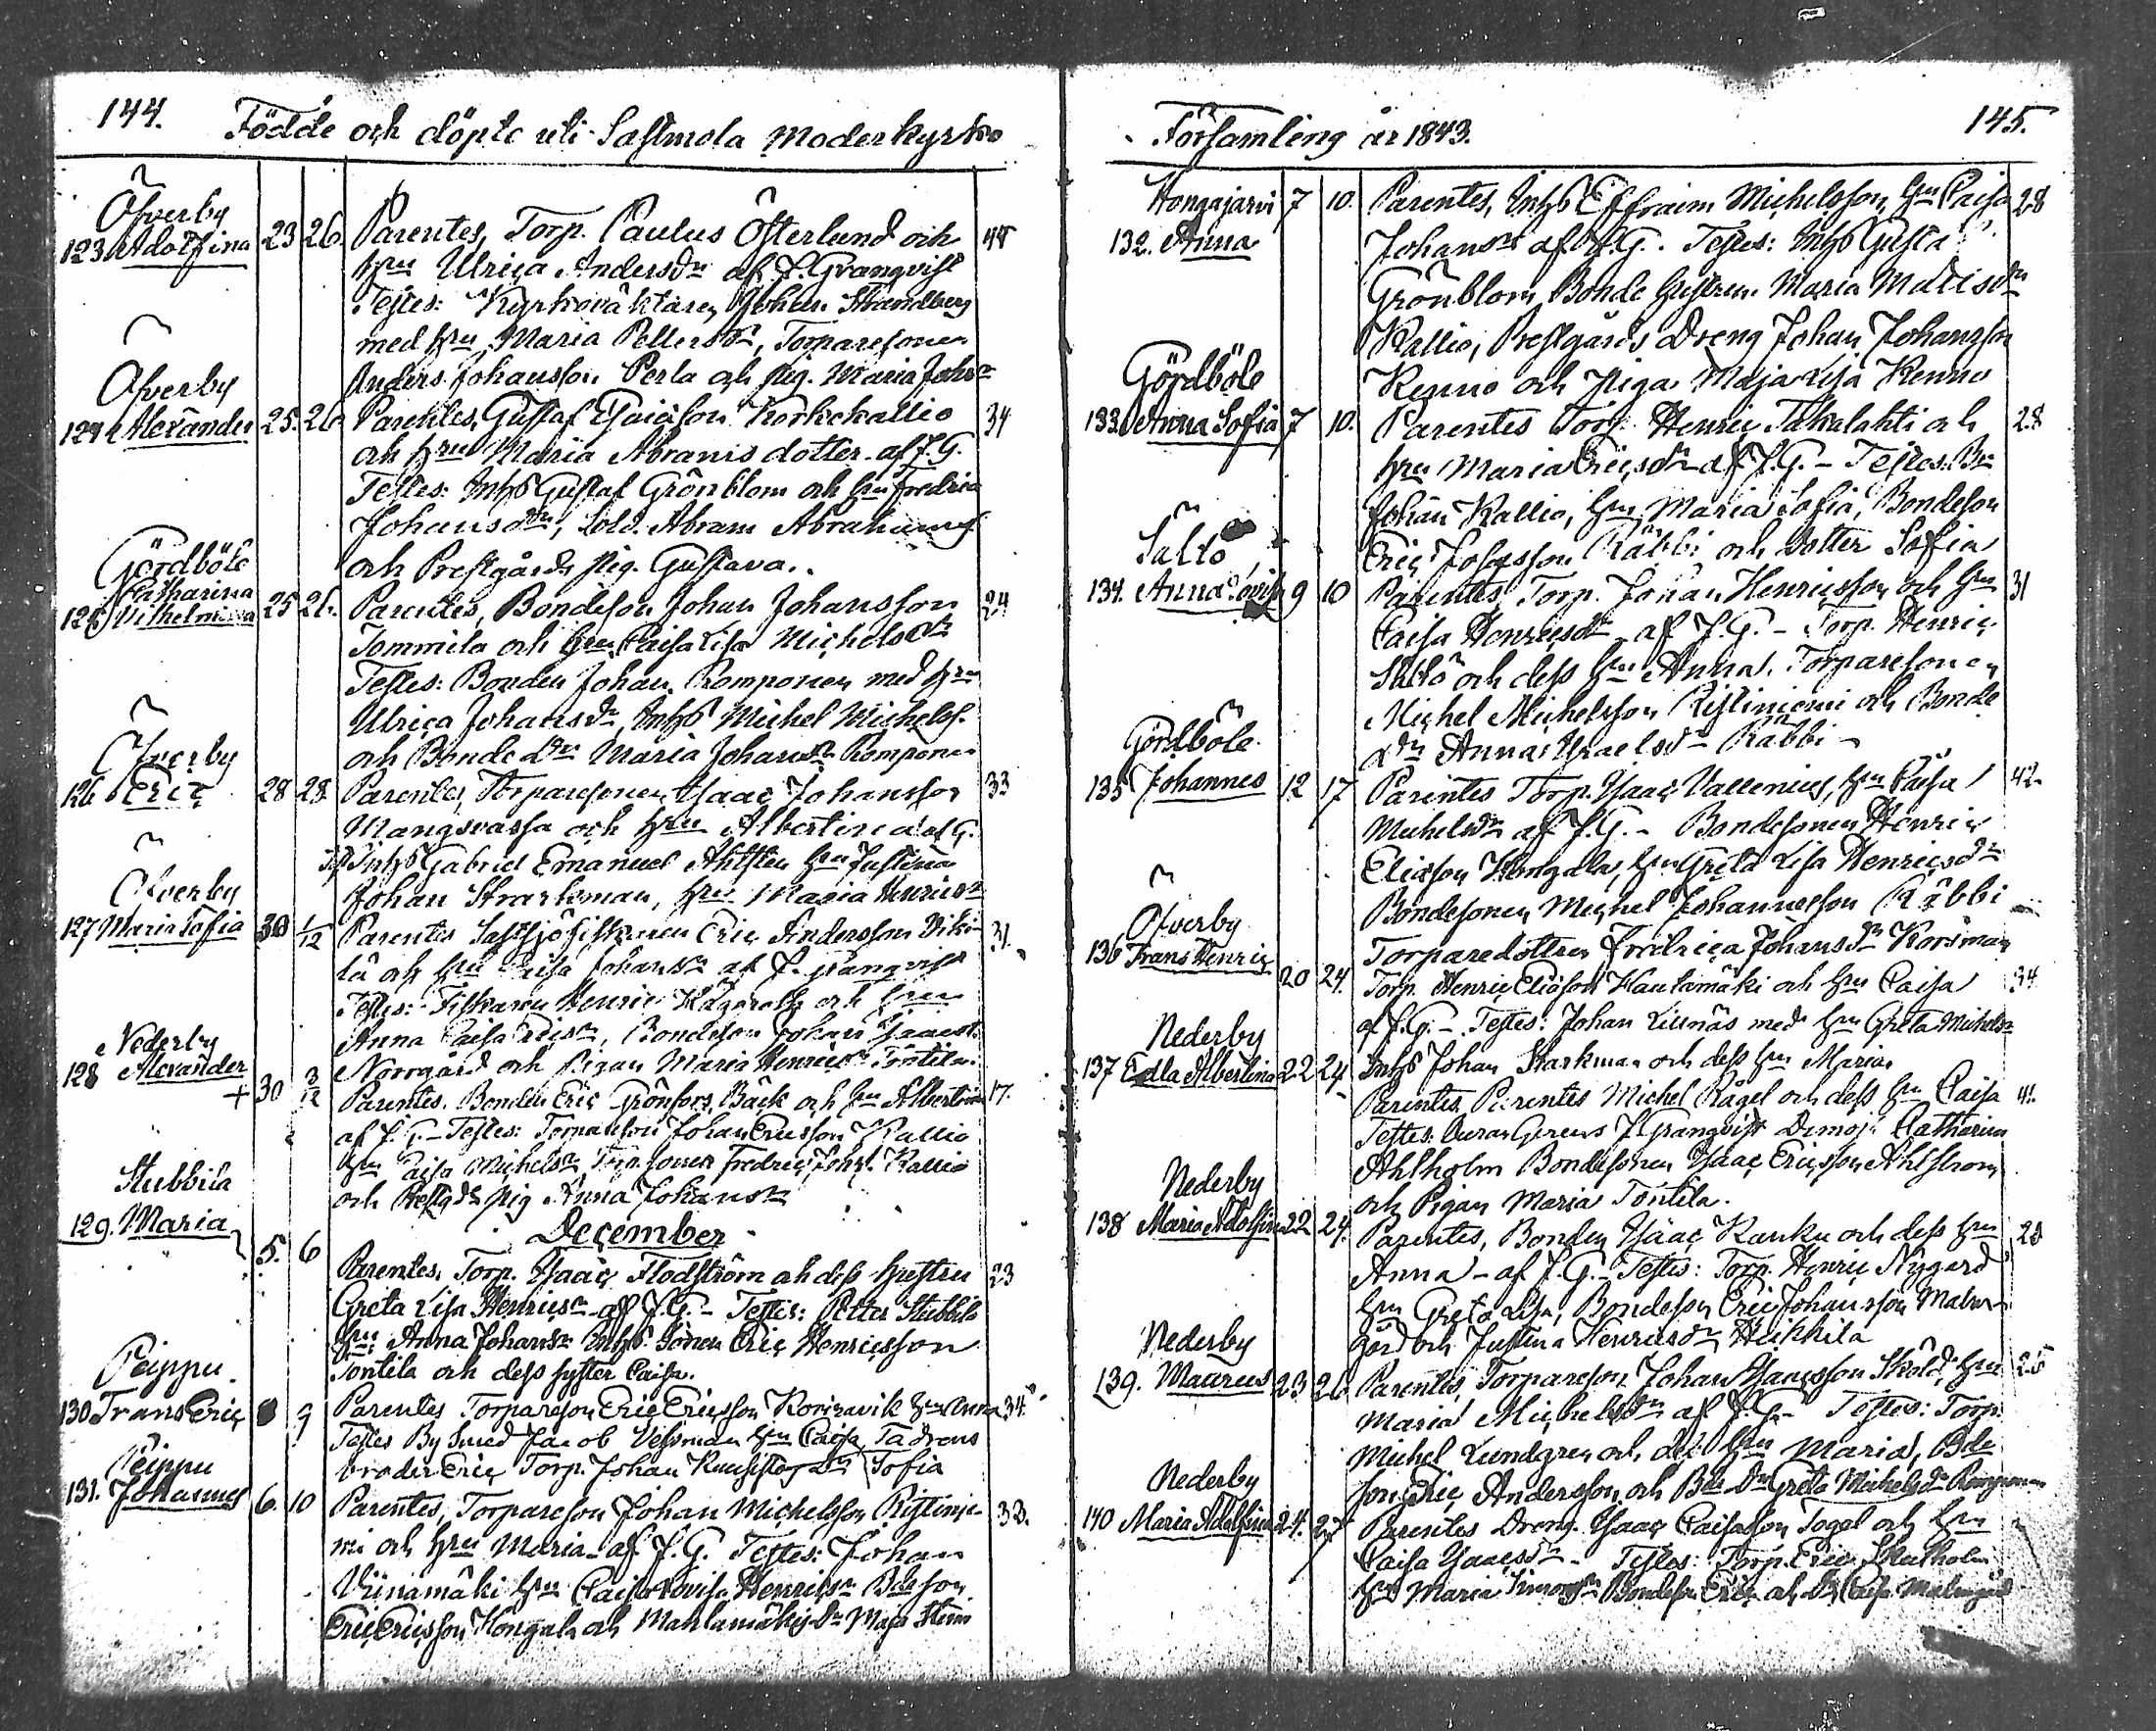 144. Födde och döpte uti Sastmola Moderkyrko
Öfverby
123 Adolfina 23 26. Parentes, Torp. Paulus Österlund och 44
hru Ulrica Andersdr af J. Granqvist
Testes: Kyrkoväktaren Johan Strandberg
med hru Maria Pettersdr, Torparesonen
Anders Johansson Perla och pig. Maria Johsdr
Öfverby
124 Alexander 25. 26 Parentes, Gustaf Isaicsson Korkekallio 34
och hru Maria Abramsdotter af J. G.
Testes: Inhs Gustaf Grönblom och hru Fredrica
Johansdr, Sold. Abram Abrahams
och Prestgårds pig. Gustava.
Gördböle
Catharina
125 Vilhelmina 25 26. Parentes, Bondeson Johan Johansson 24
Tommila och hru Caisa Lisa Michelsdr
Testes: Bonden Johan Romponen med hru
Ulrica Johansdr, Inhs Michel Michelss.
och Bonde dr Maria Johansdr Romponen
Öfverby
126 Eric 28 28. Parentes, Torparesonen Isaac Johansson 33
Mangsvassa och hru Albertina af G.
Inhs Gabriel Emanuel Ahlsten hru Justina
Johan Starkman, hru Maria Henricsdr
Öfverby
127 Maria Sofia 30 1/12 Parentes Saltsjöfiskaren Eric Andersson Viki- 31.
lä och hru Caisa Johansdr af J. Granqvist
Testes: Fiskaren Henric Hägeroth och hru
Anna Caisa Ericsdr, Bondeson Johan Isaacss.
Norrgård och Pigan Maria Henricsdr Tontila.
Nederby
128 Alexander + 30 3/12 Parentes. Bonden Eric Grönfors Bäck och hru Albertina 17.
af J. G. – Testes: Torpareson Johan Ericsson Kallio
hru Caisa Michelsdr, Torp. sonen Fredric Johss. Kallio
och Prestgds pig Anna Johansdr
December
Stubbila
129. Maria 5. 6 Parentes, Torp. Isaac Flodström och dess hustru 23
Greta Lisa Henricsdr af J. G. – Testes: Petter Stubbila
hru Anna Johansdr Inhs. Sonen Eric Henricsson
Tontila och dess syster Caisa.
Peippu
130 Frans Eric 9 Parentes Torpareson Eric Ericsson Korisavik hru Anna 34.
Testes By Smed Jacob Vessman hru Caisa
broder Eric Torp. Johan dr Sofia
Peippu
131. Johannes 6. 10 Parentes, Torpareson Johan Michelsson Ristinie- 33.
mi och hru Maria af J. G. Testes: Johan
Viinamäki hru Caisa Lovisa Henricsdr Bdeson
Eric Ericsson Hongala och Mantamäkis dr Maja Stina
Församling år 1843. 145.
Hongajärvi 7 10. Parentes, Inhs Effraim Michelsson, hru Caisa 28
132. Anna Johansdr af J. G. Testes: Inhs Gusta
Grönblom, Bonde hustrun Maria Matisdr
Kallio, Prestgårds Dreng Johan Johansson
Kenno och Piga Maja Lisa Kenno
Gördböle
133. Anna Sofia 7 10. Parentes Torp. Henric Takalahti och 28
hru Maria Ericsdr af J. G. – Testes: Bn
Johan Kallio, hru Maria Sofia, Bondeson
Eric Josefsson Räbbi och dotter Sofia
Saltö
134. Anna Lovisa 9 10 Parentes Torp. Johan Henricsson och hru 31
Caisa Henricsdr af J. G. – Torp. Henric
Saltö och dess hru Anna, Torparesonen
Michel Michelsson Ristiniemi och Bonde
dr Anna Israelsdr Räbbi –
Gördböle
135 Johannes 12 17 Parentes Torp. Isaac Vallenius, hru Caisa 42.
Michelsdr af J. G. – Bondesonen Henric
Eliasson Hongala, hru Greta Lisa Henricsdr
Bondesonen Michel Johannesson Räbbi
Torparedottren Fredrica Johansdr Korsman
Öfverby
136 Frans Henric 20 24. Torp. Henric Eliasson Hautamäki och hru Caisa 34
af J. G. – Testes: Johan Lillnäs med hru Greta Michelsdr
Inhs Johan Starkman och dess hru Maria
Nederby
137 Edla Albertina 22 24. Parentes Parentes Michel Rågel och dess hru Caisa 41.
Testes: J. Granqvist Demois. Catharina
Ahlholm Bondesonen Isaac Ericsson Ahlström
och Pigan Maria Tontila.
Nederby
138 Maria Adolfina 22 24. Parentes, Bonden Isaac Kauku och dess hru 28
Anna – af J. G. – Testes: Torp. Henric Nygård
hru Greta Lisa, Bondeson Eric Johansson Malm-
gård och Justina Henricsdr Heikkila
Nederby
139. Maurus 23 26 Parentes, Torpareson Johan Isaacsson Sköld, hru 25
Maria Michelsdr af J. G. – Testes: Torp.
Michel Lundgren och dess hru Maria, Bde
son Eric Andersson och Bde dr Greta Michelsdr Romponen
Nederby
140 Maria Adolfina 24. 27 Parentes Dreng. Isaac Caisasson Togel och hru
Caisa Isaacsdr – Testes: Torp. Eric Skutholm
hru Maria Simonsdr Bondeson Eric och dr Caisa Malmgård